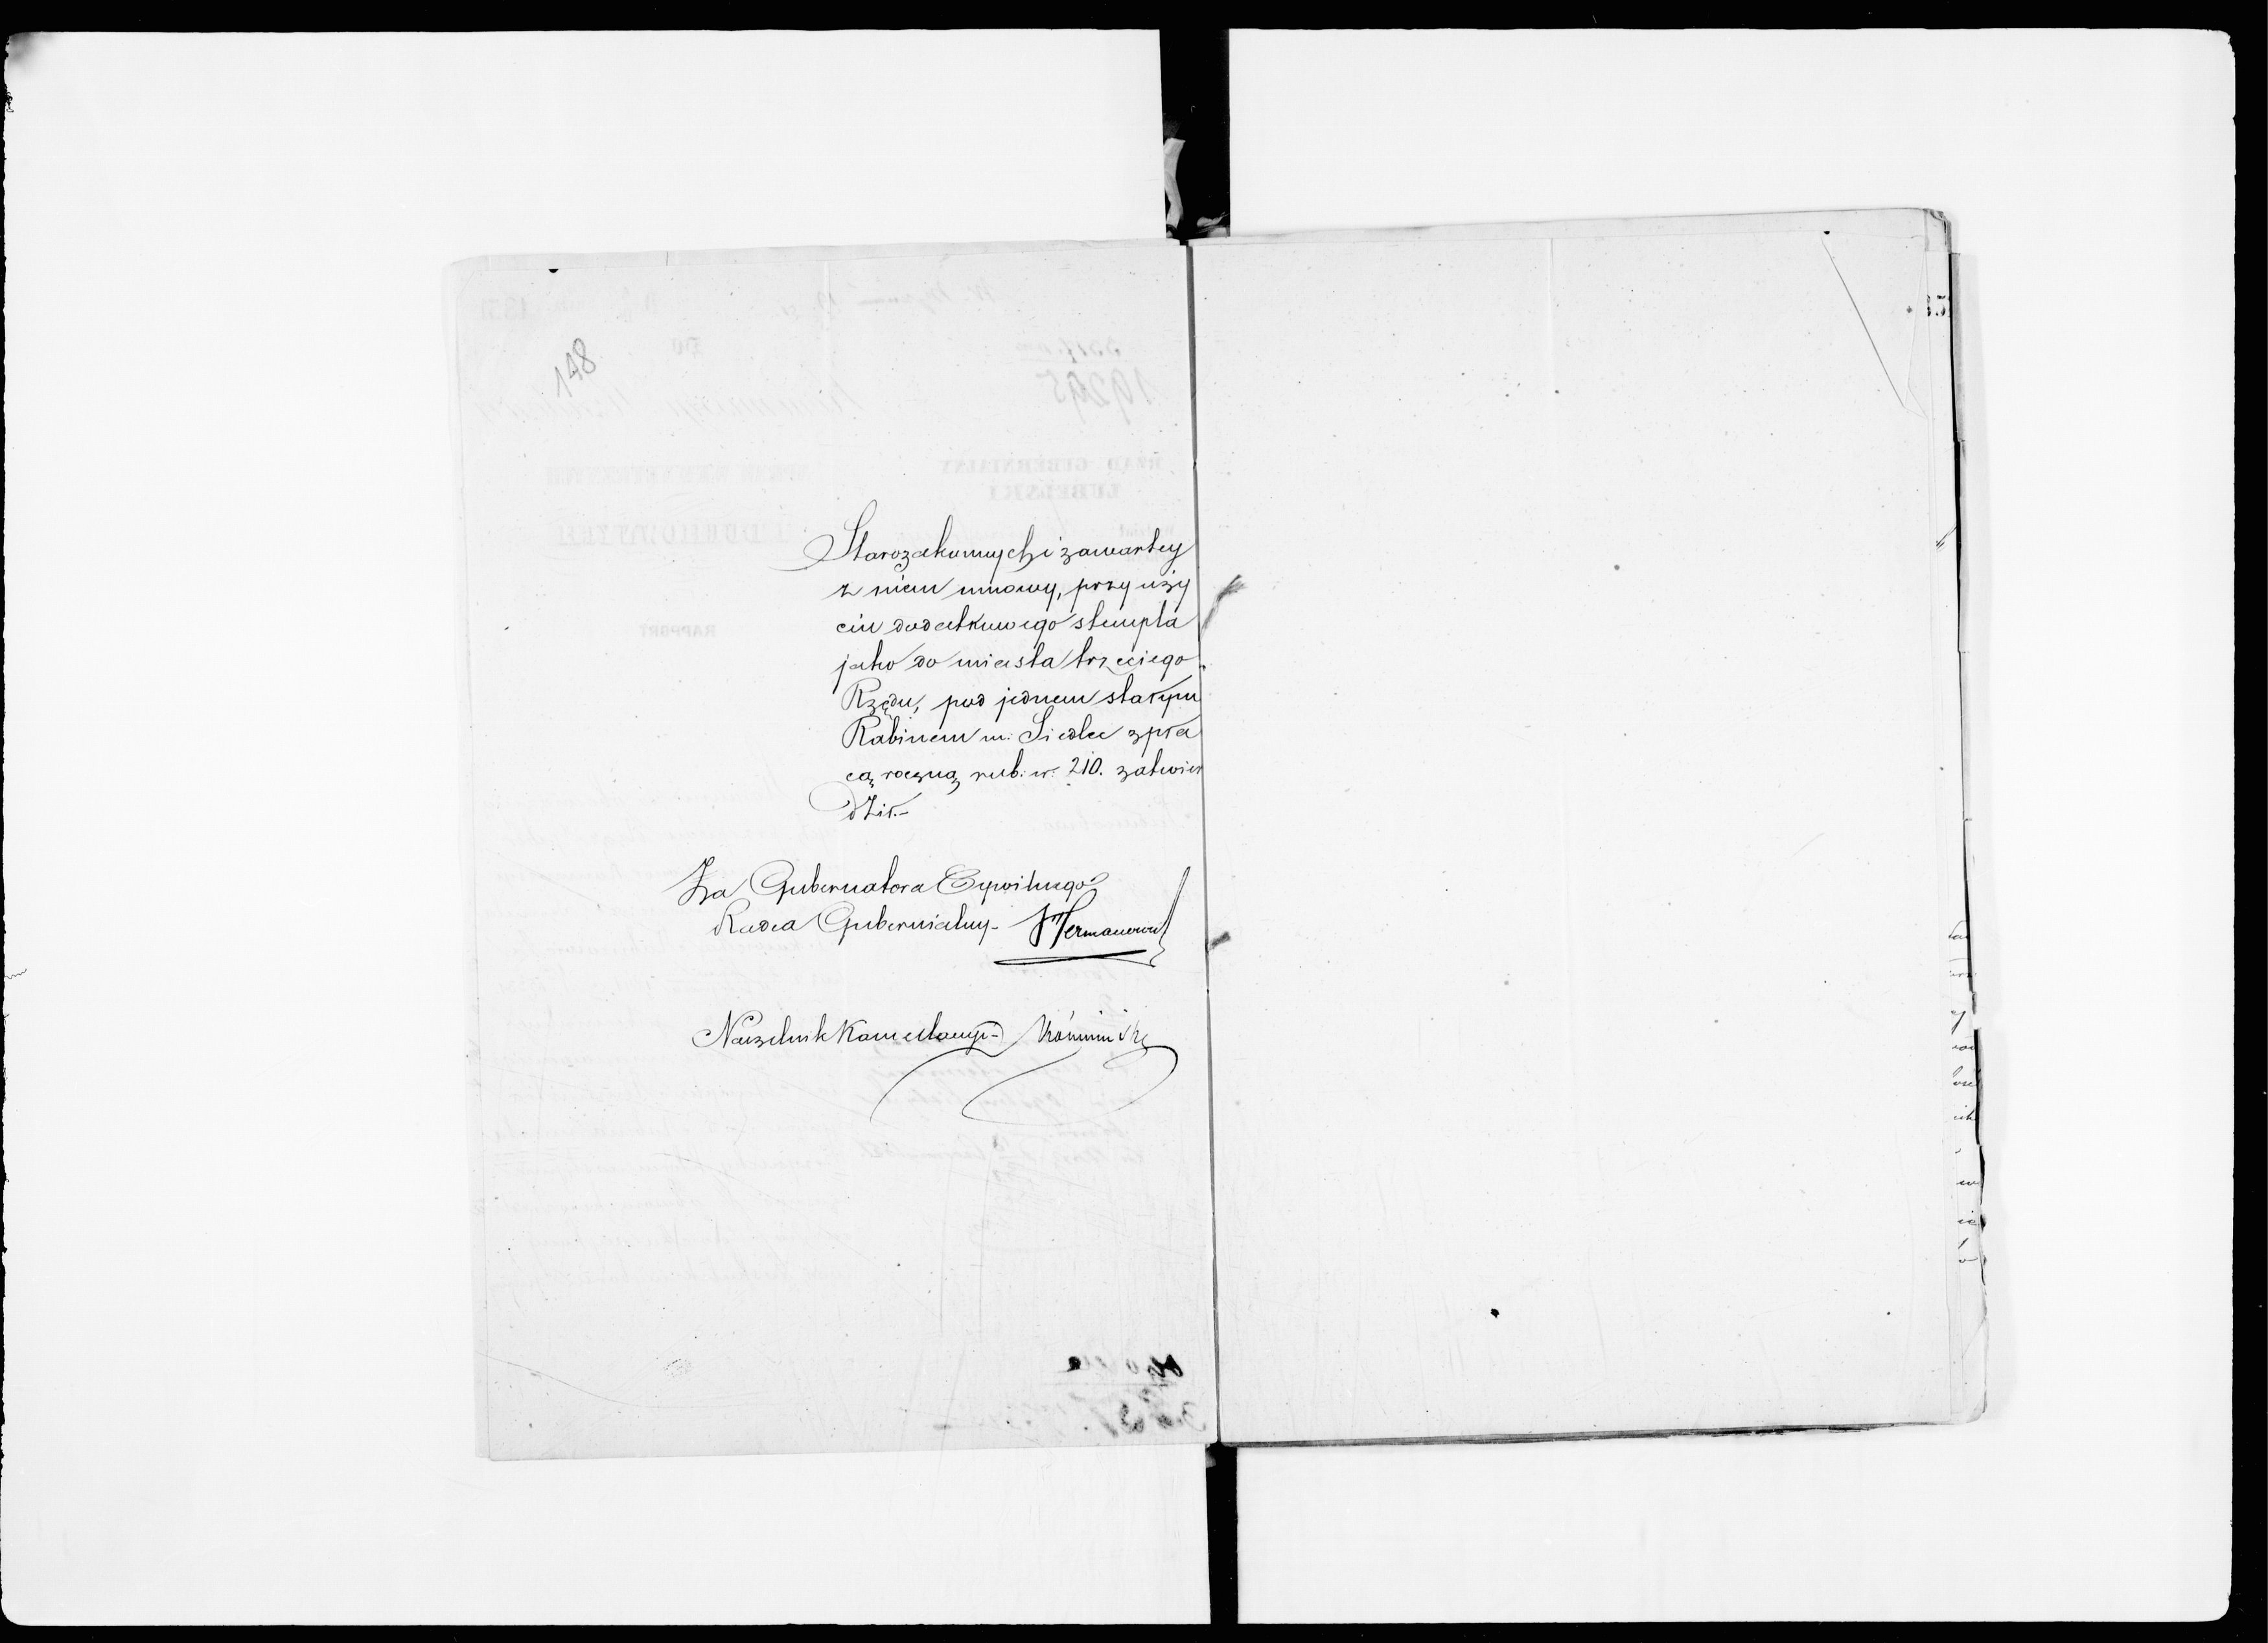 148
Starozakonnych i zawartey
z niem umowy, przy uży
ciu dodatkowego stempla
jako do miasta trzeciego
Rzędu, pod jednem starym
Rabinem m: Siedlec z pła
cą roczną rub: sr: 210. zatwier
dził.-
Za Gubernatora Cywilnego
Radca Gubernialny- Hermanowicz
Naczelnik Kancellaryi-